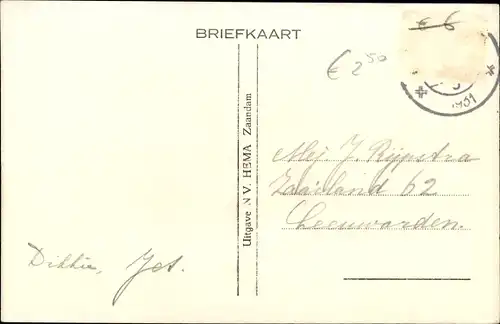 BRIEFKAART
€ 6
€ 2 50
1931
Uitgave N.V. HEMA Zaandam
Mej J. Rijpstra
Zaailand 62
Leeuwarden.
Jet.